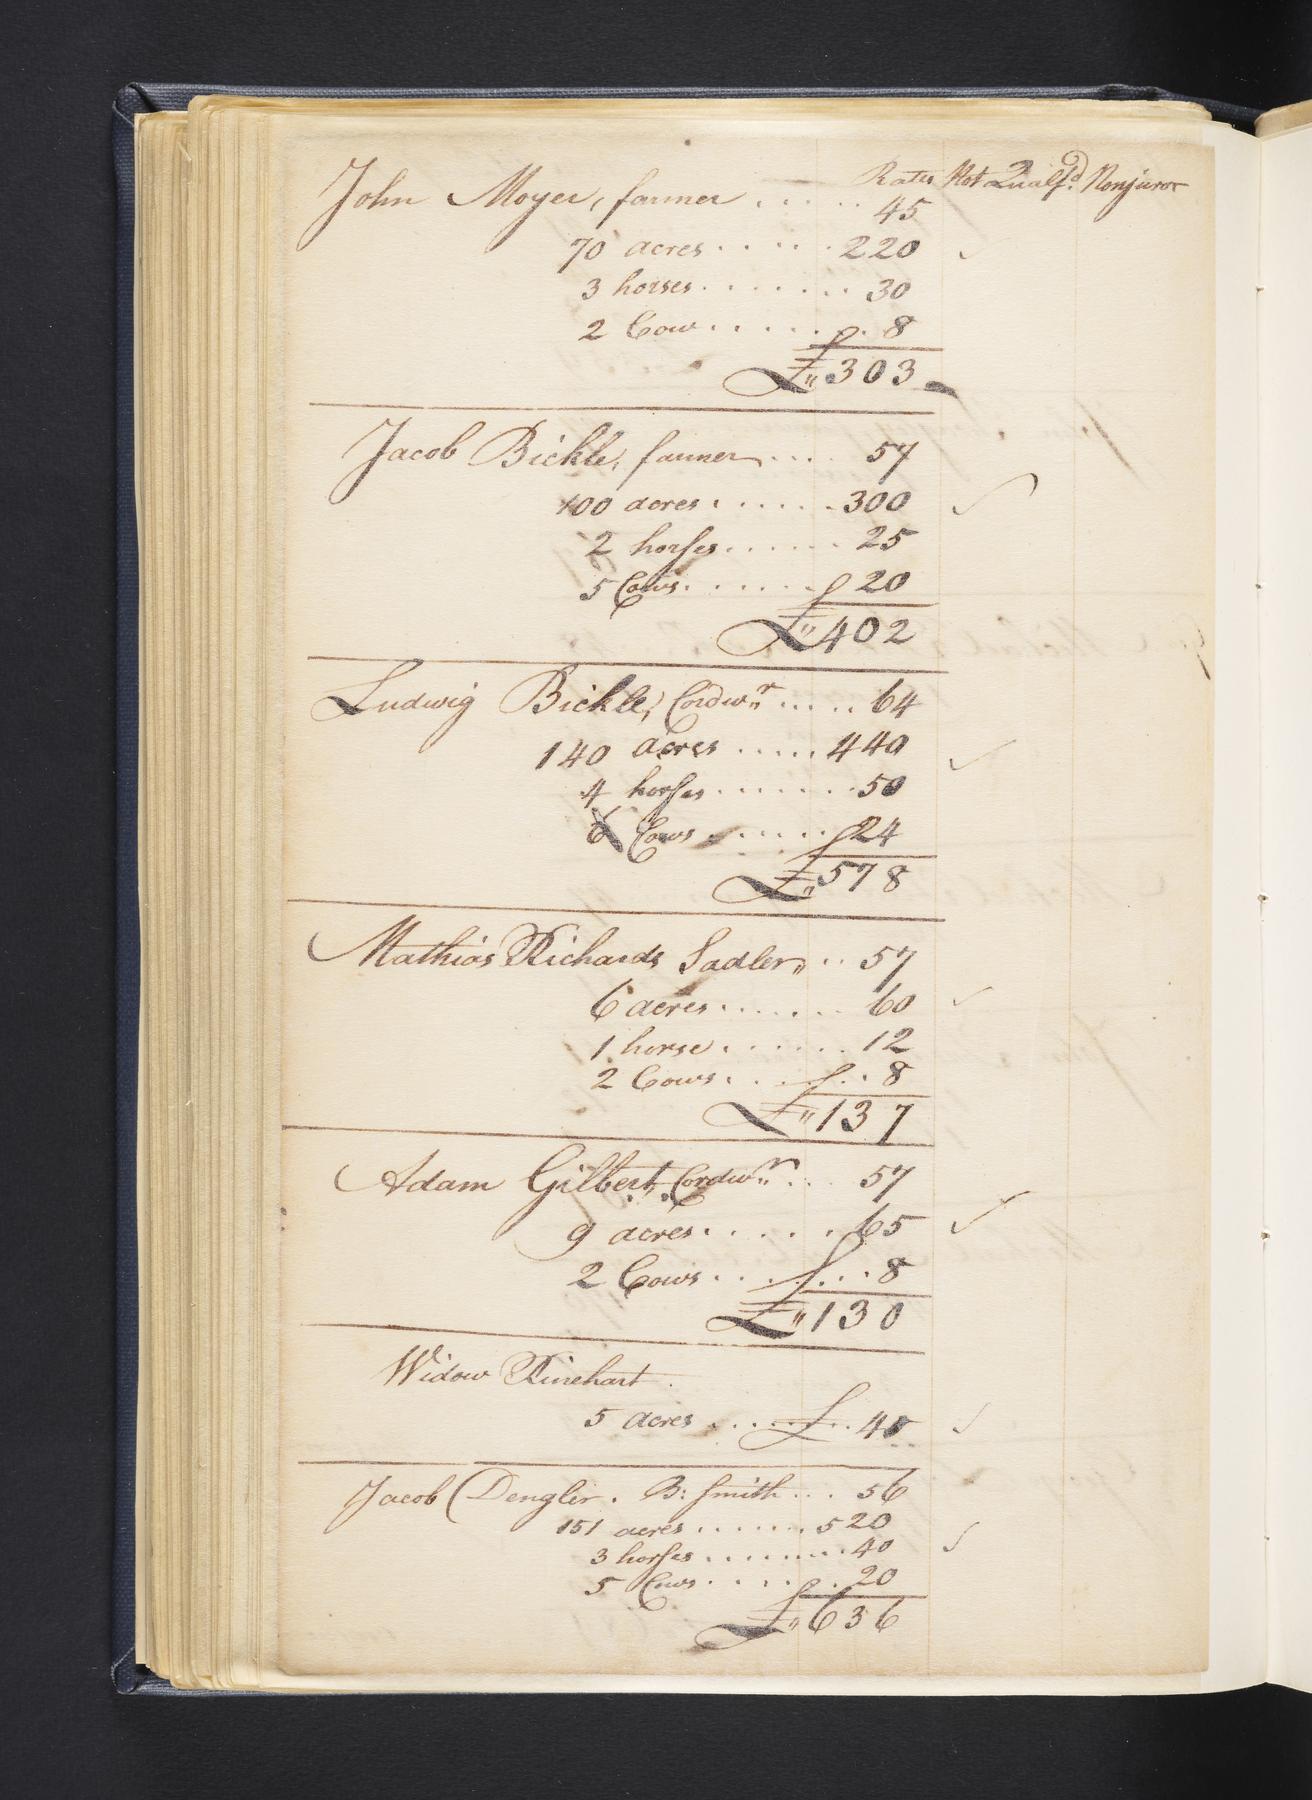 Rates Not Qualf.d Nonjuror
John Moyer, farmer ..... 45
70 acres ..... 220
3 horses ........ 30
2 Cow ....... 8
£ " 303
Jacob Bickle, farmer .... 57
100 acres ....... 300
2 horses ...... 25
5 Cows ...... 20
£ " 402
Ludwig Bickle, Cordwr ..... 64
140 acres ..... 440
4 horses ....... 50
6 Cows ...... 24
£ " 578
Mathias Richards Sadler, .. 57
6 acres ....... 60
1 horse ...... 12
2 Cows ...... 8
£ " 137
Adam Gilbert, Cordwr ... 57
9 acres ..... 65
2 Cows ....... 8
£ " 130
Widow Rinehart .
5 acres ...... £ .. 40
Jacob Dengler . B: Smith ... 56
151 acres ....... 520
3 horses ........ 40
5 Cows ...... 20
£ " 636